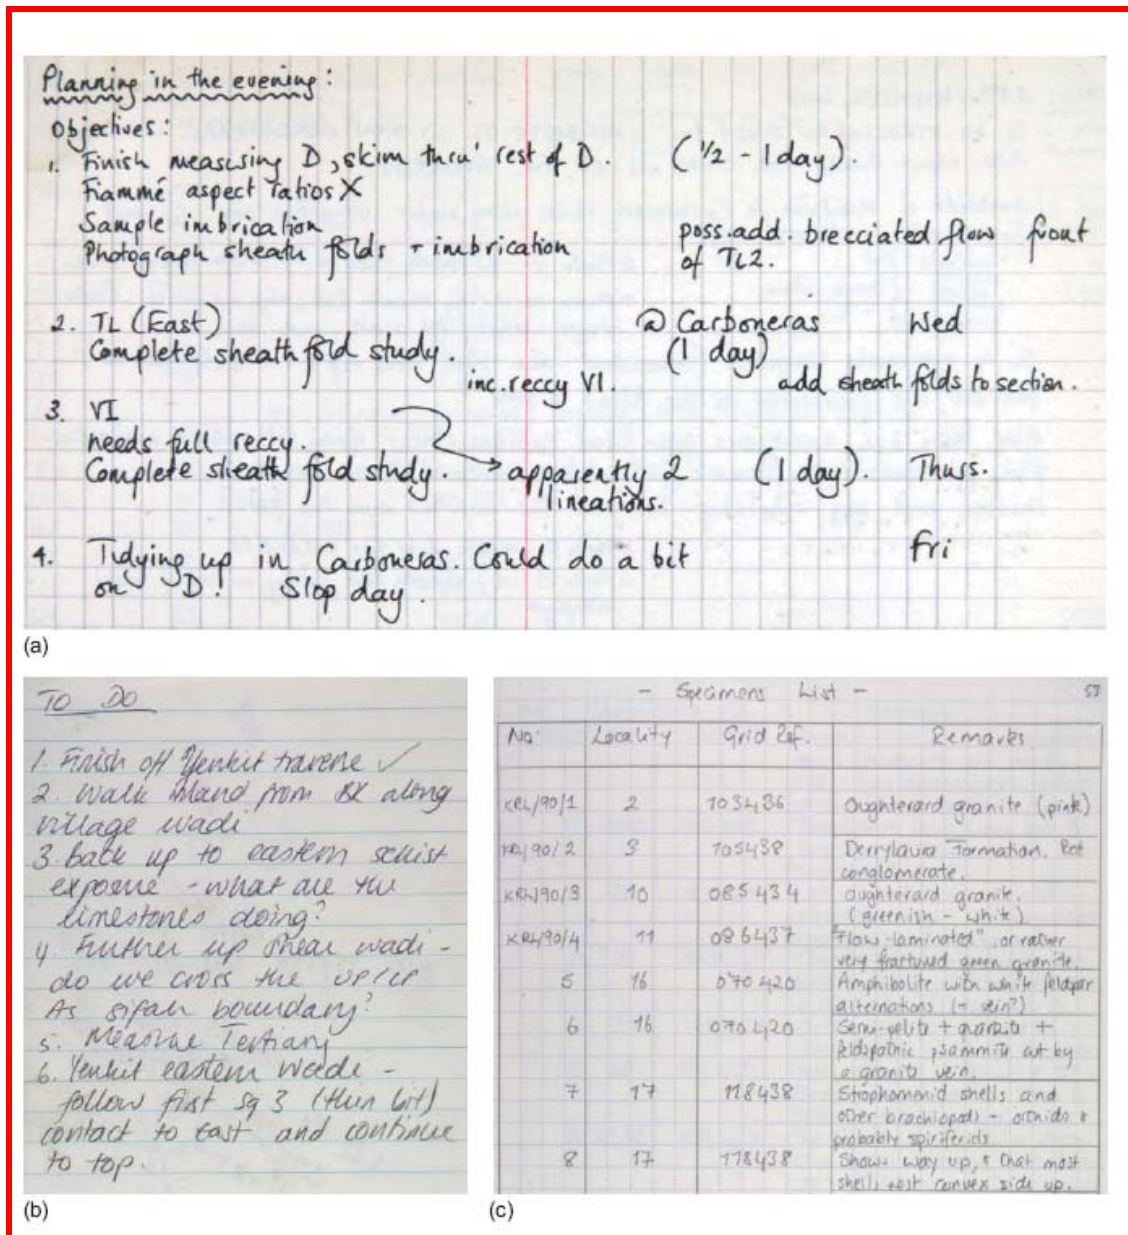 Planning in the evening:
Objectives:
1. Finish measuring D, skim thru' rest of D. (½ - 1 day).
Fiammé aspect ratios X
Sample imbrication
Photograph sheath folds + imbrication
poss. add. brecciated flow front
of TL2.
2. TL (East) @ Carboneras Wed
Complete sheath fold study. (1 day)
inc. reccy VI. add sheath folds to section.
3. VI
needs full reccy.
Complete sheath fold study. apparently 2 (1 day). Thurs.
lineations.
4. Tidying up in Carboneras. Could do a bit Fri
on D! Slop day.
(a)
TO DO
1. Finish off Yenkit traverse ✓
2. Walk inland from BK along
village wadi
3. back up to eastern schist
exposure - what are the
limestones doing?
4. Further up shear wadi -
do we cross the UP/LP
As sifah boundary?
5. Measure Tertiary
6. Yenkit eastern wadi -
follow first Sq 3 (then)
contact to east and continue
to top.
(b)
- Specimens List - 53
No. Locality Grid Ref. Remarks
KRL/90/1 2 103436 Oughterard granite (pink)
KRL/90/2 3 105438 Derrylaura Formation.
conglomerate.
KRL/90/3 10 085434 Oughterard granite.
(greenish - white)
KRL/90/4 11 086437 "Flow-laminated", or rather
very fractured green granite.
5 16 070420 Amphibolite with white feldspar
alternations (+ vein?)
6 16 070420 Semi-pelite + +
feldspathic psammite cut by
a granite vein.
7 17 118438 Strophomenid shells and
other brachiopods - orthids &
probably spiriferids
8 17 118438 Shows way up, & that most
shells rest convex side up.
(c)